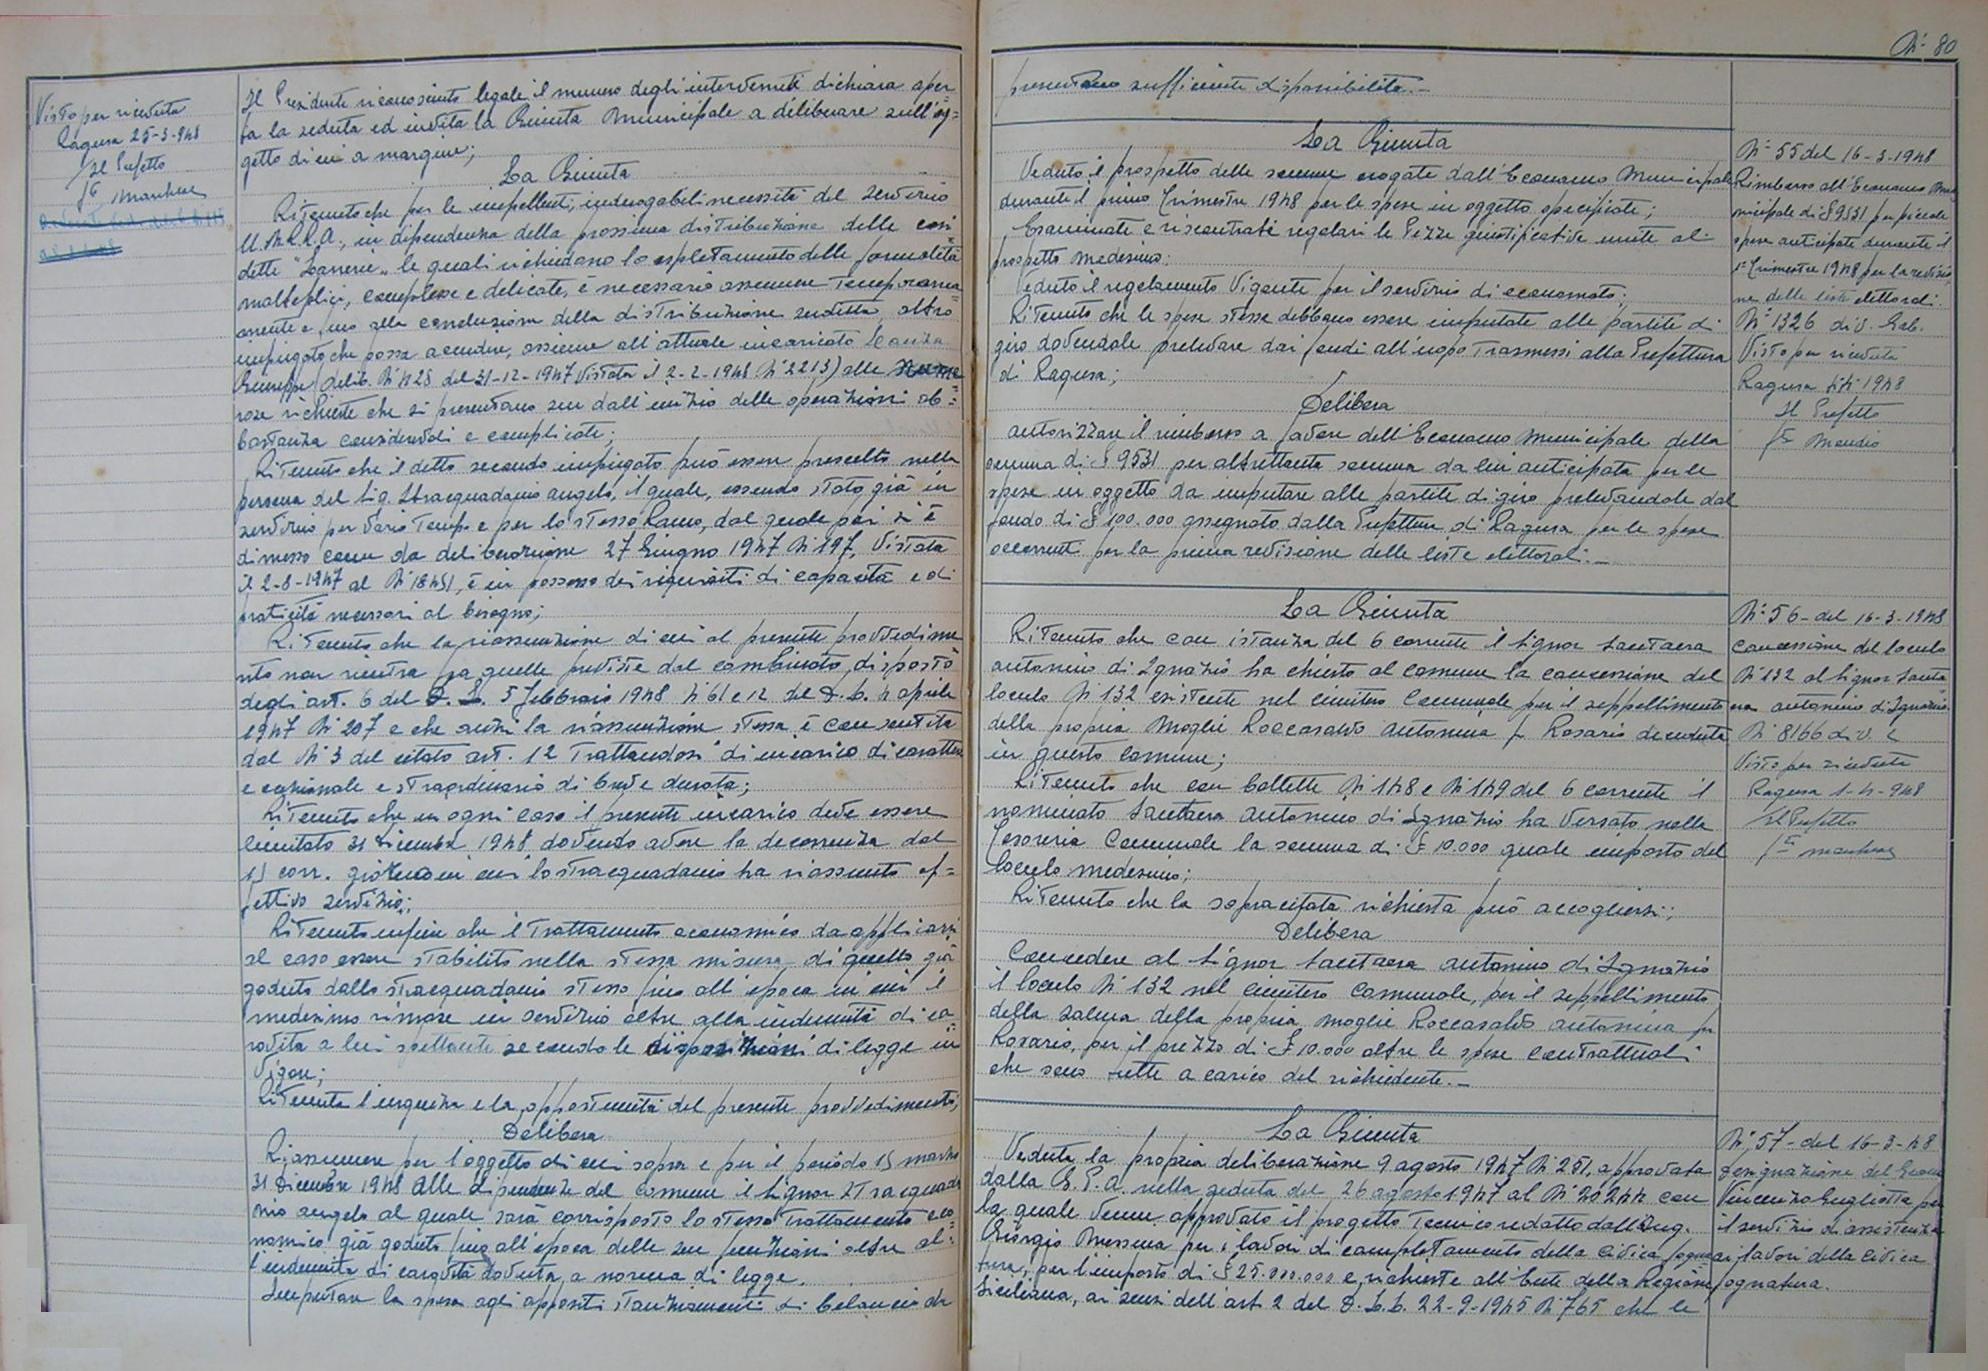 Visto per ricevuta
Ragusa 25-3-948
Il Prefetto
Il Presidente riconosciuto legale il numero degli intervenuti dichiara aper
ta la seduta ed invita la Giunta Municipale a deliberare sull'og=
getto di cui a margine;
La Giunta
Ritenuto che per le impellenti, inderogabili necessità del servizio
U.N.R.R.A., in dipendenza della prossima distribuzione delle così
dette "Lanerie" le quali richiedono lo espletamento delle formalità
molteplici, complesse e delicate, è necessario assumere temporanea=
mente e fino alla conclusione della distribuzione suddetta, altro
impiegato che possa accudire, assieme all'attuale incaricato
Giuseppe (delib. N° 428 del 31-12-1947 vistata il 2-2-1948 N° 2213) alle nume=
rose richieste che si presentano sin dall'inizio delle operazioni ab=
bastanza considerevoli e complicate;
Ritenuto che il detto secondo impiegato può essere prescelto nella
persona del Sig. Stracquadanio Angelo, il quale, essendo stato già in
servizio per vario tempo e per lo stesso Ramo, dal quale poi si è
dimesso come da deliberazione 27 Giugno 1947 N° 197, vistata
il 2-8-1947 al N° 18451, è in possesso dei requisiti di capacità e di
praticità necessari al bisogno;
Ritenuto che la riassunzione di cui al presente provvedime
nto non rientra fra quelle previste dal combinato disposto
degli art. 6 del D. L. 5 febbraio 1948 N° 61 e 12 del D. L. 4 aprile
1947 N° 207 e che anzi la riassunzione stessa è consentita
dal N° 3 del citato art. 12 trattandosi di incarico di carattere
eccezionale e straordinario di breve durata;
Ritenuto che in ogni caso il presente incarico deve essere
limitato 31 Dicembre 1948 dovendo avere la decorrenza dal
15 corr. giorno in cui lo Stracquadanio ha riassunto ef=
fettivo servizio;
Ritenuto infine che il trattamento economico da applicarsi
al caso essere stabilito nella stessa misura di quello già
goduto dallo Stracquadanio stesso fino all'epoca in cui il
medesimo rimase in servizio oltre alla indennità di ca=
rovita a lui spettante secondo le disposizioni di legge in
vigore;
Ritenuta l'urgenza e la opportunità del presente provvedimento;
Delibera
Riassumere per l'oggetto di cui sopra e per il periodo 15 marzo
31 Dicembre 1948 alle dipendenze del Comune il Signor Stracquada
nio Angelo al quale sarà corrisposto lo stesso trattamento eco
nomico già goduto fino all'epoca delle sue funzioni oltre al=
l'indennità di carovita dovuta a norma di legge.
Imputare la spesa agli appositi stanziamenti di bilancio che
N° 80
presentano sufficiente disponibilità.-
La Giunta
Veduto il prospetto delle somme erogate dall'Economo Municipale
durante il primo Trimestre 1948 per le spese in oggetto specificate;
Esaminate e riscontrate regolari le Pezze giustificative unite al
prospetto medesimo;
Veduto il regolamento Vigente per il servizio di economato;
Ritenuto che le spese stesse debbano essere imputate alle partite di
giro dovendole prelevare dai fondi all'uopo trasmessi alla Prefettura
di Ragusa;
Delibera
Autorizzare il rimborso a favore dell'Economo Municipale della
somma di £ 9531 per altrettanta somma da lui anticipata per le
spese in oggetto da imputare alle partite di giro prelevandole dal
fondo di £ 100.000 assegnato dalla Prefettura di Ragusa per le spese
occorrenti per la prima revisione delle liste elettorali.-
N° 55 del 16-3-1948
Rimborso all'Economo Mu=
nicipale di £ 9531 per piccole
spese anticipate durante il
1° Trimestre 1948 per la revisio
ne delle liste elettorali.
N° 1326 div. Gab.
Visto per ricevuta
Il Prefetto
La Giunta
Ritenuto che con istanza del 6 corrente il Signor Santaera
Antonino di Ignazio ha chiesto al Comune la concessione del
loculo N° 132 esistente nel cimitero Comunale per il seppellimento
della propria moglie Roccasalvo Antonina fu Rosario deceduta
in questo Comune;
Ritenuto che con bollette N° 148 e N° 149 del 6 corrente il
nominato Santaera Antonino di Ignazio ha versato nella
Tesoreria Comunale la somma di £ 10.000 quale importo del
loculo medesimo;
Ritenuto che la sopracitata richiesta può accogliersi;
Delibera
Concedere al Signor Santaera Antonino di Ignazio
il loculo N° 132 nel cimitero Comunale, per il seppellimento
della salma della propria moglie Roccasalvo Antonina fu
Rosario, per il prezzo di £ 10.000 oltre le spese contrattuali
che sono tutte a carico del richiedente.-
N° 56 - del 16-3-1948
Concessione del loculo
N° 132 al Signor Santa
era Antonino di Ignazio.
N° 8166 div. 2
Visto per ricevuta
Ragusa 1-4-948
Il Prefetto
La Giunta
Veduta la propria deliberazione 9 agosto 1947 N° 251, approvata
dalla G.P.A. nella seduta del 26 agosto 1947 al N° 20244 con
la quale venne approvato il progetto tecnico redatto dall'Ing.
Giorgio Messina per i lavori di completamento della civica fogna
tura, per l'importo di £ 25.000.000 e richieste all'Ente della Regione
Siciliana, ai sensi dell'art. 2 del D. L. L. 22-9-1945 N° 765 che le
N° 57 - del 16-3-48
Designazione del Geom.
Vincenzo Gugliotta per
il servizio di assistenza
ai lavori della Civica
fognatura.